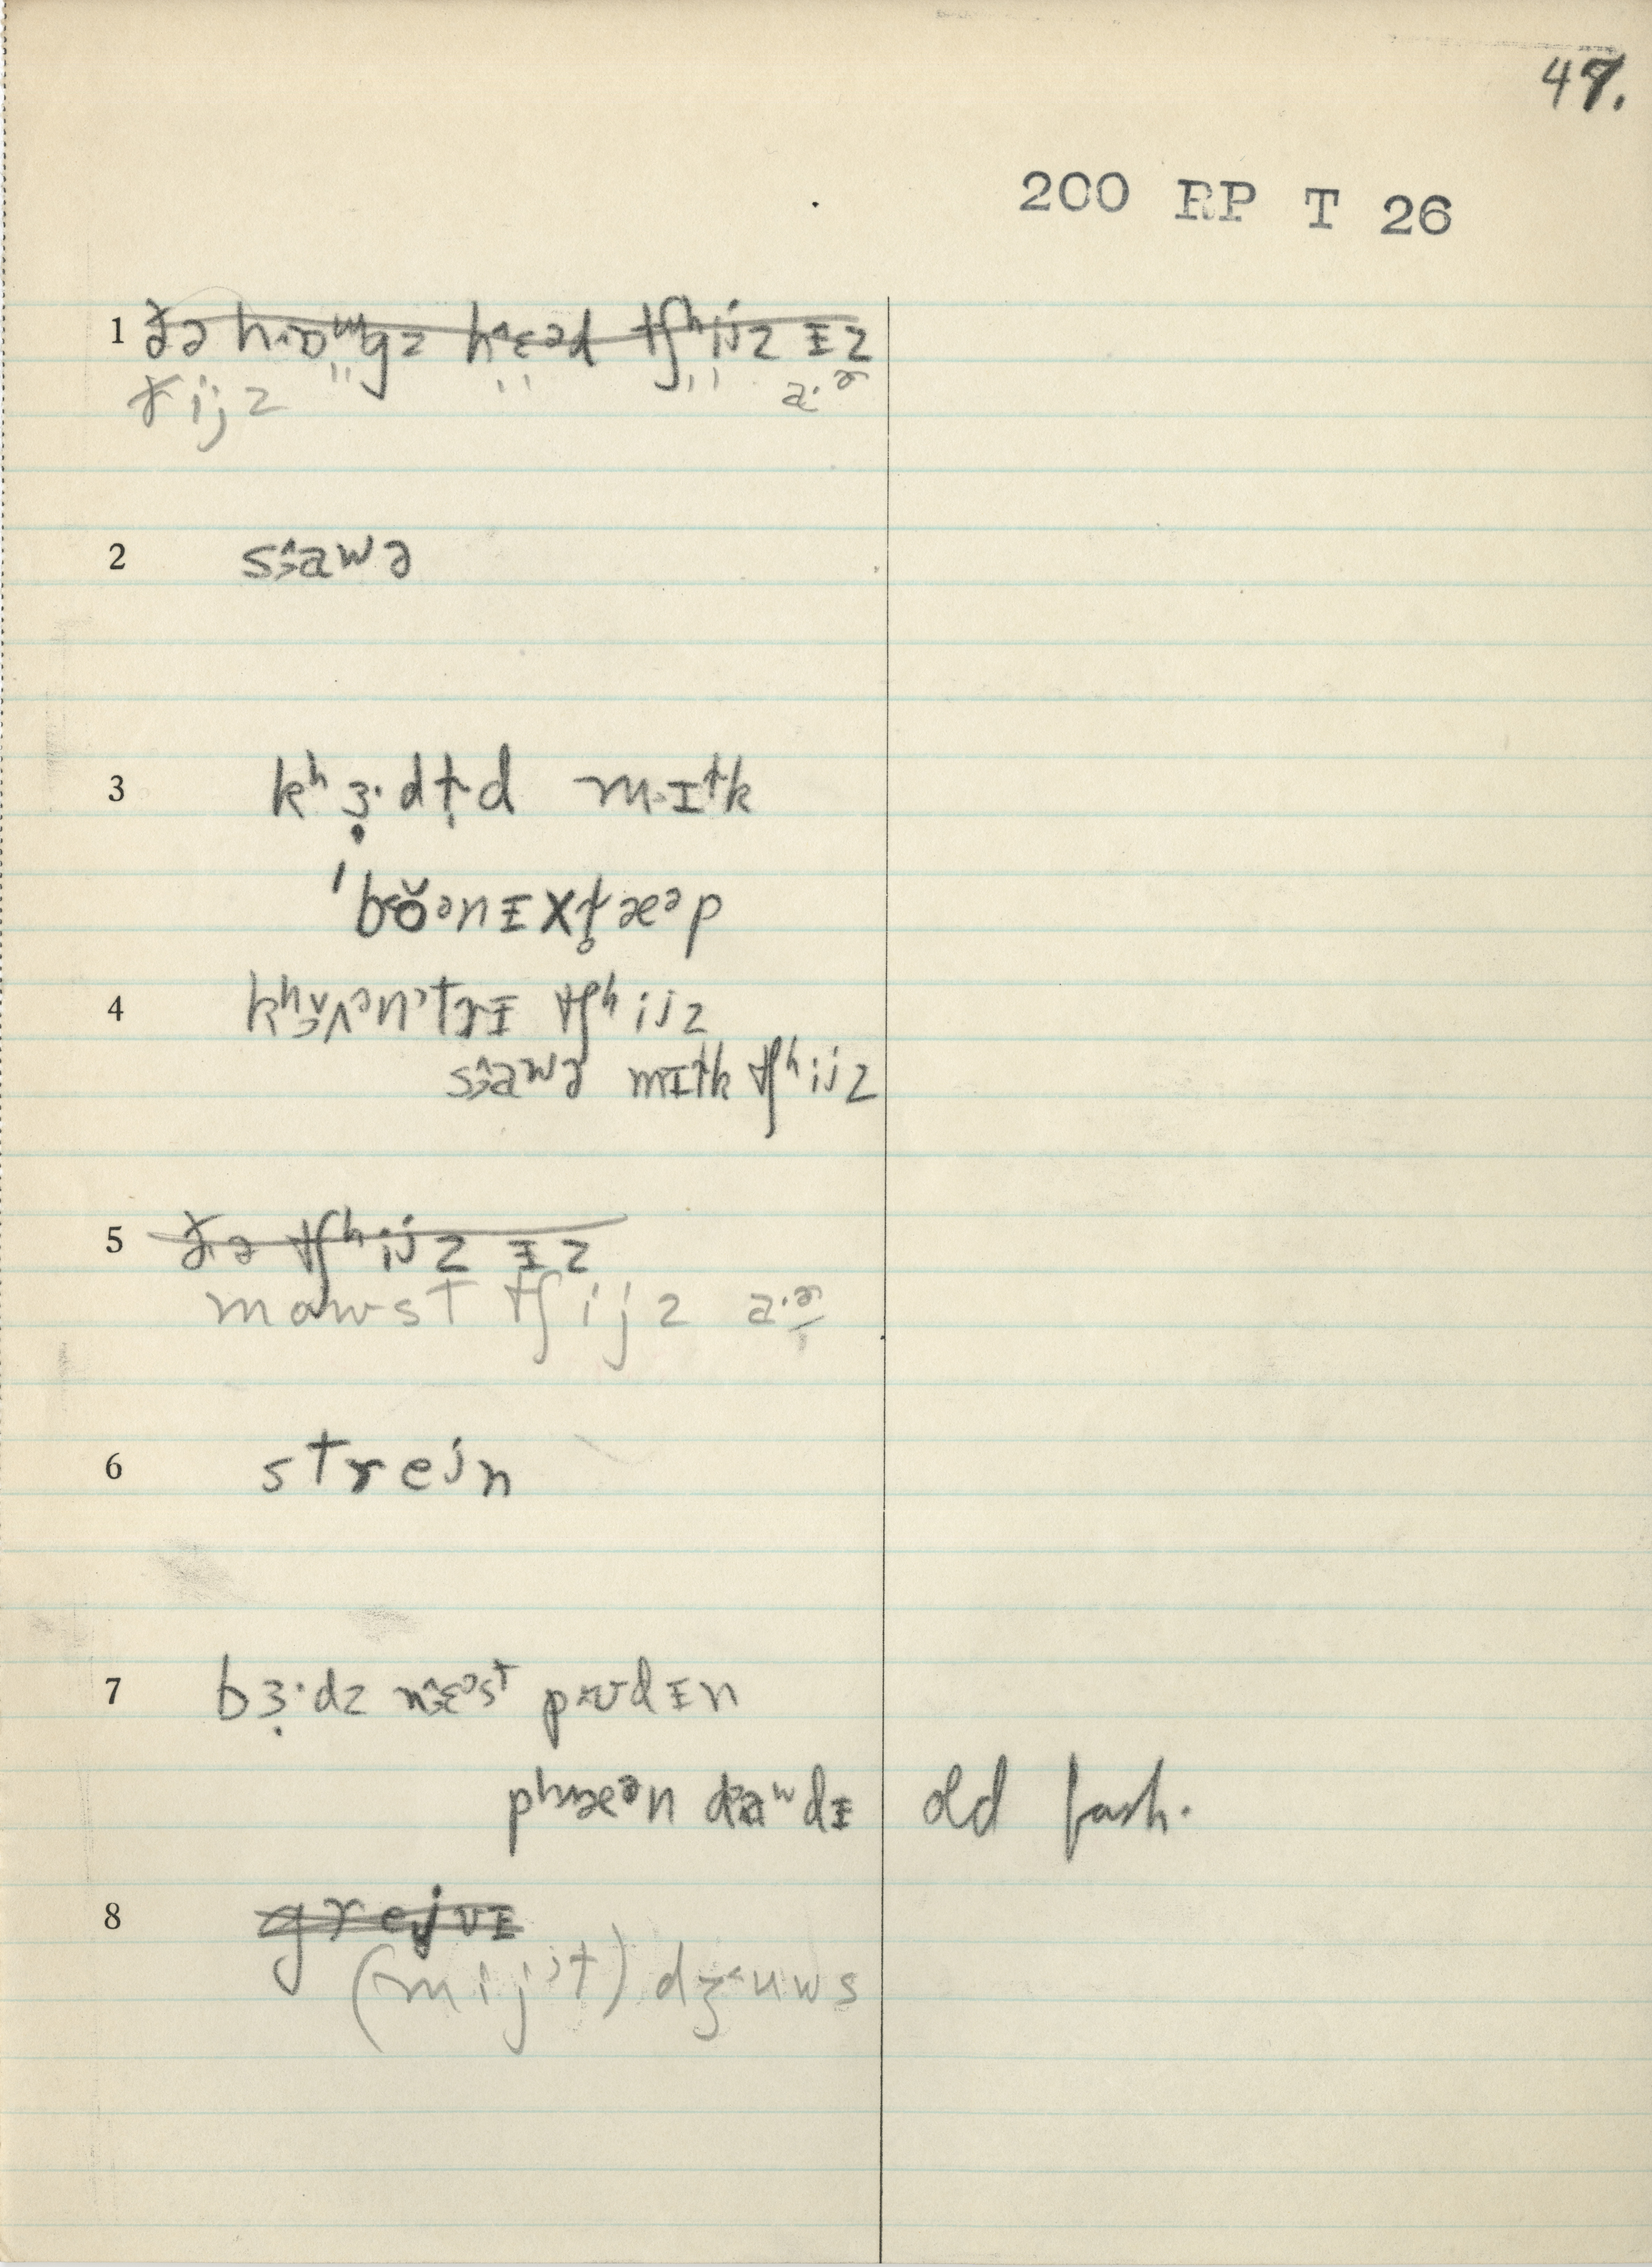 47.
200 RP T 26
1 ðə hɒgz hɛəd tʃʰijz ɪz
ðijz " " " a·ɚ
2 s‹awə
3 kʰɜ·dɨd mɪɫk
ˈbɒ̆ənɪx
4 tʃʰijz
s‹awɚ mɪɫk tʃʰijz
5 ðə tʃʰijz ɪz
mowst tʃijz a·ɚ
6 strejn
7 bɜ·dz nɛəst pʊdɪn
pʰæən dawdɪ old fash.
8 grejvɪ
(mijˀt) dʒuws